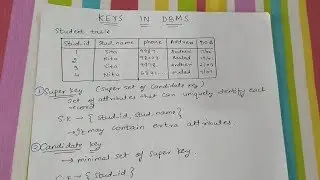 KEYS IN DBMS
Student table
Stud.id Stud.name phone Address DOB
1 Sita
2 Rita
3 Sita
4 Nita
① Super key (Super set of Candidate key)
Set of attributes that can uniquely identify each
record
S.K → { Stud.id, Stud.name }
→ It may contain extra attributes.
② Candidate key
→ minimal set of Super key
C.K → { Stud.id }